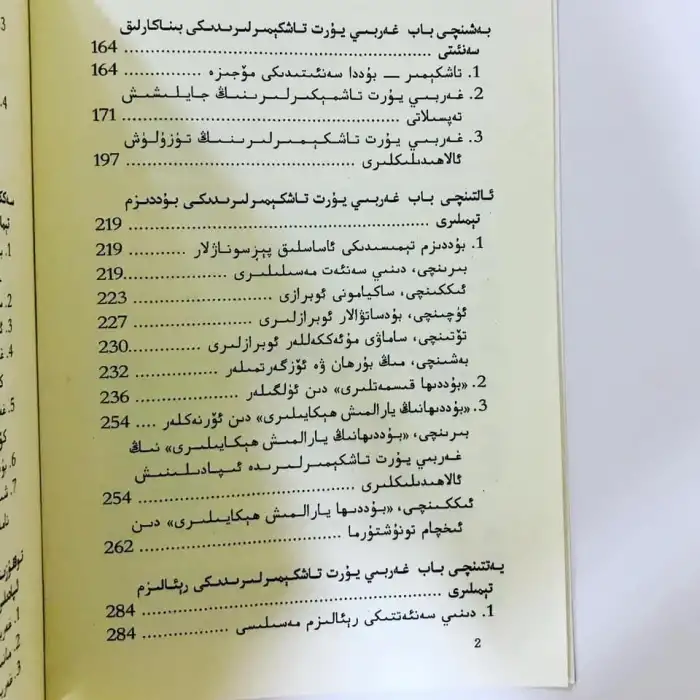 بەشىنچى باب غەربىي يۇرت تاشكېمىرلىرىدىكى بىناكارلىق
سەنئىتى ........ 164
1. تاشكېمىر — بۇددا سەنئىتىدىكى مۆجىزە ........ 164
2. غەربىي يۇرت تاشمېكىرلىرىنىڭ جايلىشىش
تەپسىلاتى ........ 171
3. غەربىي يۇرت تاشكېمىرلىرىنىڭ تۈزۈلۈش
ئالاھىدىلىكلىرى ........ 197
ئالتىنچى باب غەربىي يۇرت تاشكېمىرلىرىدىكى بۇددىزم
تېمىلىرى ........ 219
1. بۇددىزم تېمىسىدىكى ئاساسلىق پېرسوناژلار ........ 219
بىرىنچى، دىنىي سەنئەت مەسىلىلىرى ........ 219
ئىككىنچى، ساكيامونى ئوبرازى ........ 223
ئۈچىنچى، بۇدساتۋالار ئوبرازلىرى ........ 227
تۆتىنچى، ساماۋى مۇئەككەللەر ئوبرازلىرى ........ 230
بەشىنچى، مىڭ بۇرھان ۋە ئۆزگەرتمىلەر ........ 232
2. «بۇددىھا قىسمەتلىرى» دىن ئۈلگىلەر ........ 236
3. «بۇددىھانىڭ يارالمىش ھېكايىلىرى» دىن ئۆرنەكلەر .... 254
بىرىنچى، «بۇددىھانىڭ يارالمىش ھېكايىلىرى» نىڭ
غەربىي يۇرت تاشكېمىرلىرىدە ئىپادىلىنىش
ئالاھىدىلىكلىرى ........ 254
ئىككىنچى، «بۇددىھا يارالمىش ھېكايىلىرى» دىن
ئىخچام تونۇشتۇرما ........ 262
يەتتىنچى باب غەربىي يۇرت تاشكېمىرلىرىدىكى رېئالىزم
تېمىلىرى ........ 284
1. دىنىي سەنئەتتىكى رېئالىزم مەسىلىسى ........ 284
2